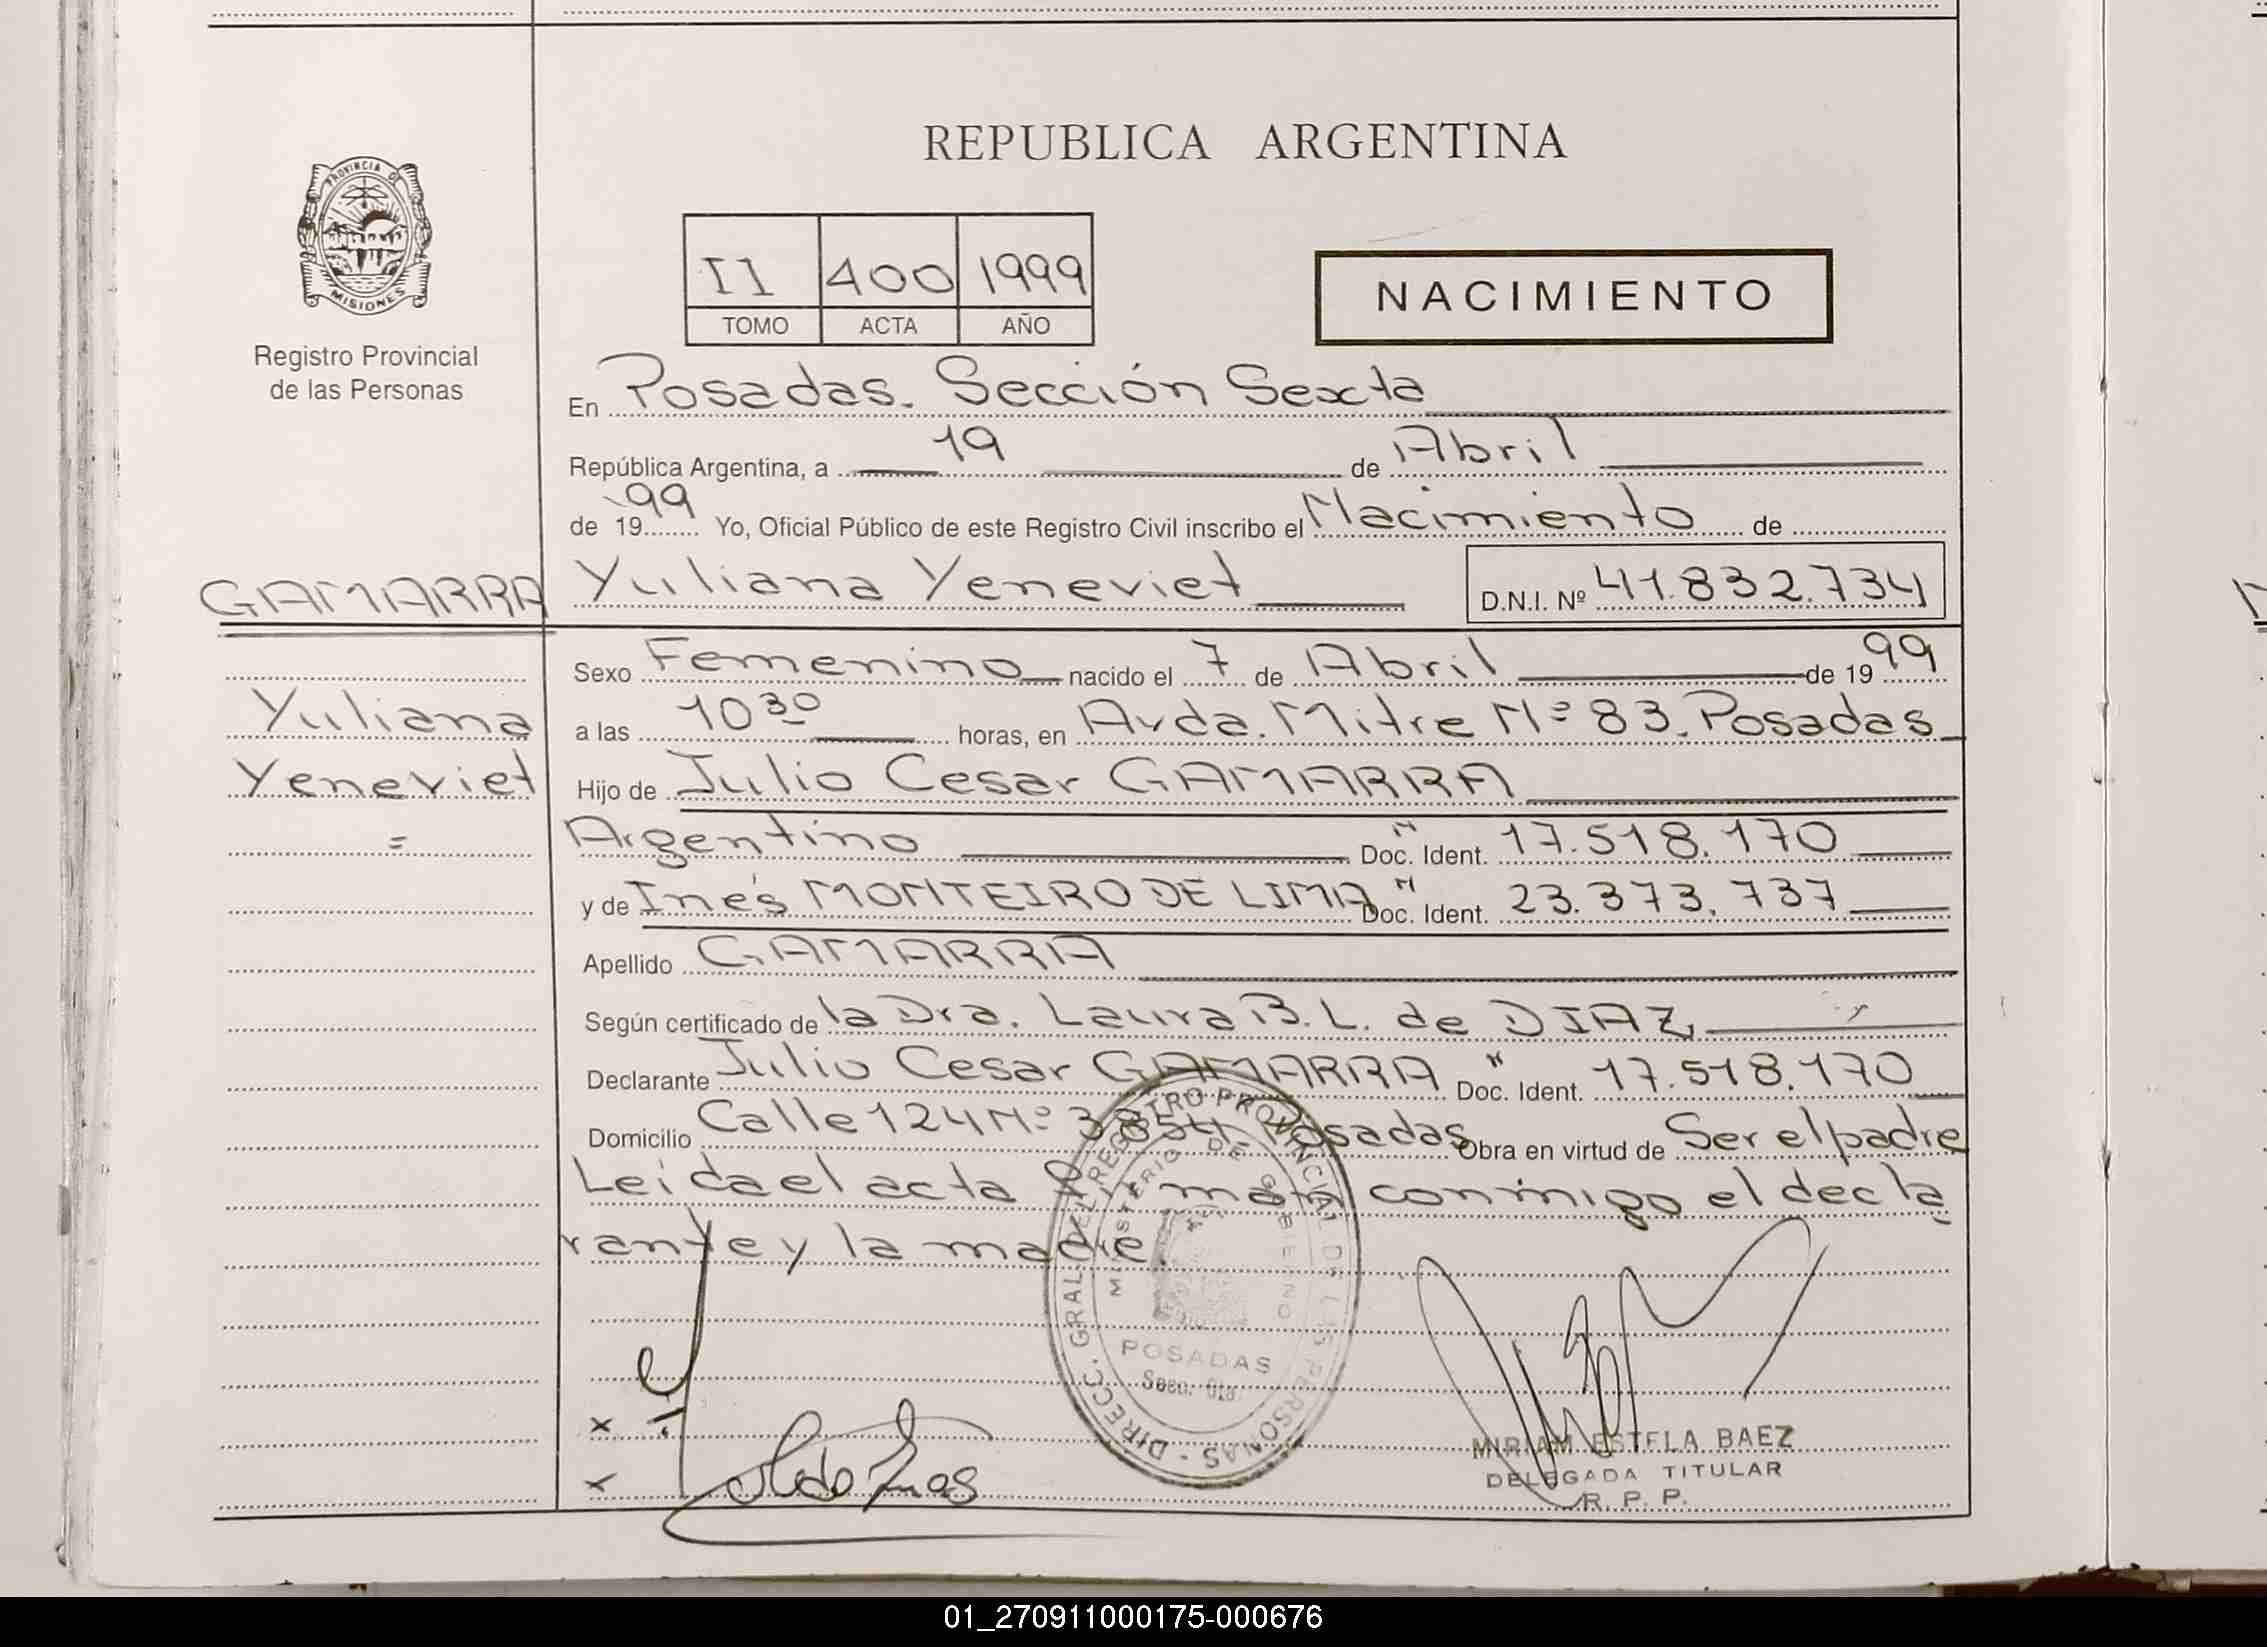 PROVINCIA DE
MISIONES
Registro Provincial
de las Personas
REPUBLICA ARGENTINA
II 400 1999
TOMO ACTA AÑO
NACIMIENTO
En Posadas. Sección Sexta
República Argentina, a 19 de Abril
de 1999 Yo, Oficial Público de este Registro Civil inscribo el Nacimiento de
GAMARRA Yuliana Yeneviet D.N.I. Nº 41.832.734
Sexo Femenino nacido el 7 de Abril de 1999
Yuliana a las 10 30 horas, en Avda. Mitre Nº 83. Posadas
Yeneviet Hijo de Julio Cesar GAMARRA
= Argentino " Doc. Ident. 17.518.170
y de Inés MONTEIRO DE LIMA " Doc. Ident. 23.373.737
Apellido GAMARRA
Según certificado de la Dra. Laura B. L. de DIAZ
Declarante Julio Cesar GAMARRA " Doc. Ident. 17.518.170
Domicilio Calle 124 Nº 3854 Posadas Obra en virtud de Ser el padre
Leida el acta firman conmigo el decla
rante y la madre.
DIRECC. GRAL. DEL REGISTRO PROVINCIAL DE LAS PERSONAS
MINISTERIO DE GOBIERNO
POSADAS
Secc. 6ta.
x
x
MIRIAM ESTELA BAEZ
DELEGADA TITULAR
R. P. P.
01_270911000175-000676